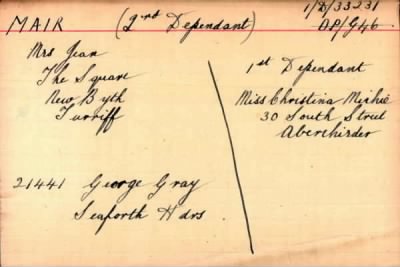 MAIR (2nd Dependant)
1/D/33231
AP/G46
Mrs Jean
The Square
New Byth
Turriff
1st Dependant
Miss Christina Michie
30 South Street
Aberchirder
21441 George Gray
Seaforth Hdrs